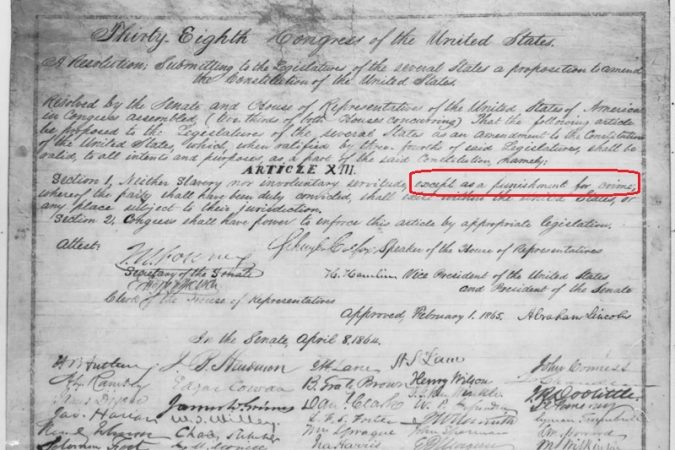 Thirty-Eighth Congress of the United States.
A Resolution: Submitting to the Legislatures of the several States a proposition to amend
the Constitution of the United States.
Resolved by the Senate and House of Representatives of the United States of America
in Congress assembled, (two thirds of both Houses concurring) That the following article
be proposed to the Legislatures of the several States as an amendment to the Constitution
of the United States, which, when ratified by three fourths of said Legislatures, shall be
valid, to all intents and purposes, as a part of the said Constitution, namely:
ARTICLE XIII.
Section 1, Neither Slavery nor involuntary servitude, except as a punishment for crime,
whereof the party shall have been duly convicted, shall exist within the United States, or
any place subject to their jurisdiction.
Section 2, Congress shall have power to enforce this article by appropriate legislation.
Attest:
Schuyler Colfax Speaker of the House of Representatives
Secretary of the Senate
H. Hamlin Vice President of the United States
and President of the Senate
Clerk of the House of Representatives
Approved, February 1. 1865. Abraham Lincoln
In the Senate, April 8, 1864.
H S Lane
John Conness
Edgar Cowan
B. Gratz Brown
Henry Wilson
J R Doolittle
James Harlan
James W Grimes
Dan. Clark
Wm Sprague
Ira Harris
Solomon Foot